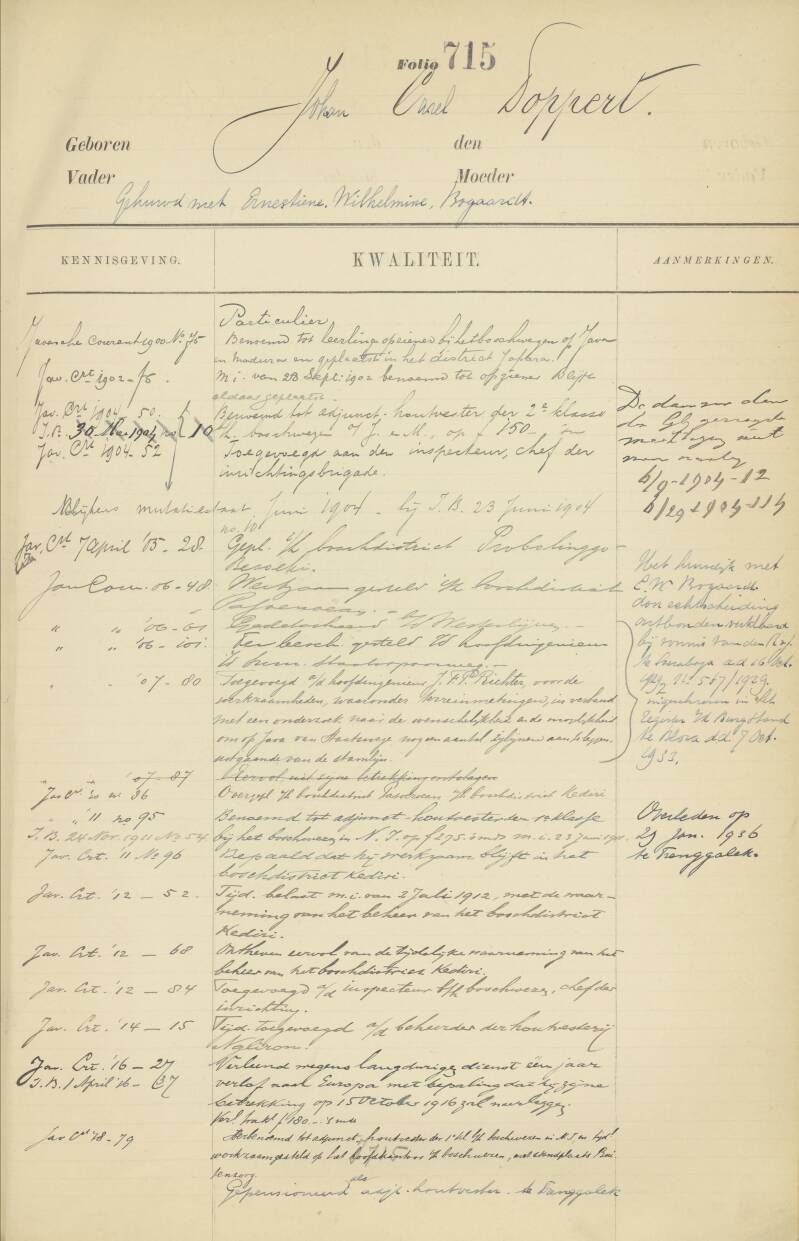 Folio 715
Johan Carel Doppert.
Geboren den
Vader Moeder
Gehuwd met Ernestiene, Wilhelmine, Bogaardt.
KENNISGEVING. KWALITEIT. AANMERKINGEN.
Particulier.
Javasche Courant 1900 No 75 Benoemd tot leerling opziener bij het boschwezen op Java
en Madura en geplaatst in het district Japara.
Jav. Crt 1902 - 78. m.i. van 23 Sept. 1902 benoemd tot opziener. Blijft
aldaar geplaatst.
Jav. Crt 1904. 50. Benoemd tot adjunct-houtvester der 2e klasse
I.B. 30 1904 no 10 b/h boschwezen op J. en M., op f 150.- en
Jav. Crt 1904. 52 Toegevoegd aan den inspecteur, chef der
inrichtingsbrigade.
6/9-1904-12
6/29-1904-114
Blijkens mutatiestaat Juni 1904 - bij I.B. 23 Juni 1904
no. 10
Jav. Crt 7 April '05-28. Gepl. i/h boschdistrict Probolinggo-
Besoeki.
Jav Cour. '06-48. Werkzaam gesteld i/h boschdistrict
Pasoeroean.
" " '06-61
" " '06-101. Ter besch. gesteld v/d hoofdingenieur
" " '07-80 Toegevoegd a/d hoofdingenieur J. F. Ph. Richter, voor de
werkzaamheden, waaronder terreinmetingen, in verband
met een onderzoek naar de wenschelijkheid en de mogelijkheid
om op Java van Staatswege nog een aantal zijlijnen aan te leggen,
uitgaande van de stamlijn.
" " '07-87 Eervol uit zijne betrekking ontslagen
Jav Ct '10 no 36 Overgepl. v/h boschdistrict Pasoeroean n/h boschdistrict Kediri
" " '11 no 95 Benoemd tot adjunct houtvester der 1e klasse
I.B. 24 Nov. 1911 No 54 bij het boschwezen in N. I. op f 275.- 's mds m.i. 23 Juni 1911.
Jav. Crt. '11 No 96 Bepaald dat hij werkzaam blijft in het
boschdistrict Kediri.
Jav. Crt. '12 - 52. Tijd. belast m.i. van 2 Juli 1912, met de waar-
neming van het beheer van het boschdistrict
Kediri.
Jav. Crt. '12 - 68 Ontheven eervol van de tijdelijke waarneming van het
beheer van het boschdistrict Kediri.
Jav. Crt. '12 - 84 Toegevoegd a/d inspecteur b/h boschwezen, chef der
inrichting.
Jav. Crt. '14 - 15 Tijd. toegevoegd a/d beheerder der houtvesterij
Ngliron.
Jav. Crt. '16 - 27 Verleend wegens langdurige dienst één jaar
I.B. 1 April '16 - 37 verlof naar Europa met bepaling dat hij zijne
betrekking op 15 October 1916 zal nederleggen.
Verl. trakt. f 180.- 's mds
Jav Crt '18-79 Herbenoemd tot adjunct-houtvester der 1e kl b/h boschwezen in N.I. en tijdl
werkzaamgesteld op het hoofdkantoor v/h boschwezen, met standplaats Bui-
tenzorg.
Gepensioneerd als adjt.-houtvester. te Trenggalek
Het huwelijk met
E. W. Bogaardt
door echtscheiding
ontbonden verklaard
bij vonnis van den R.v.J.
te Soerabaja d.d. 16 Oct.
1929 No. 567/1929.
ingeschreven in het
Register v/d Burg. Stand
te Blora d.d. 7 Oct.
1933.
Overleden op
21 Jan. 1936
te Trenggalek.